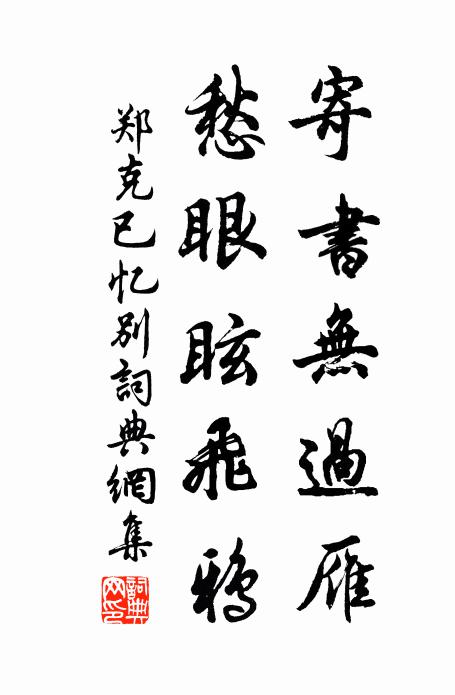 寄書無過雁
愁眼眩飛鴉
郑克己忆别詞典網集
詞典网印